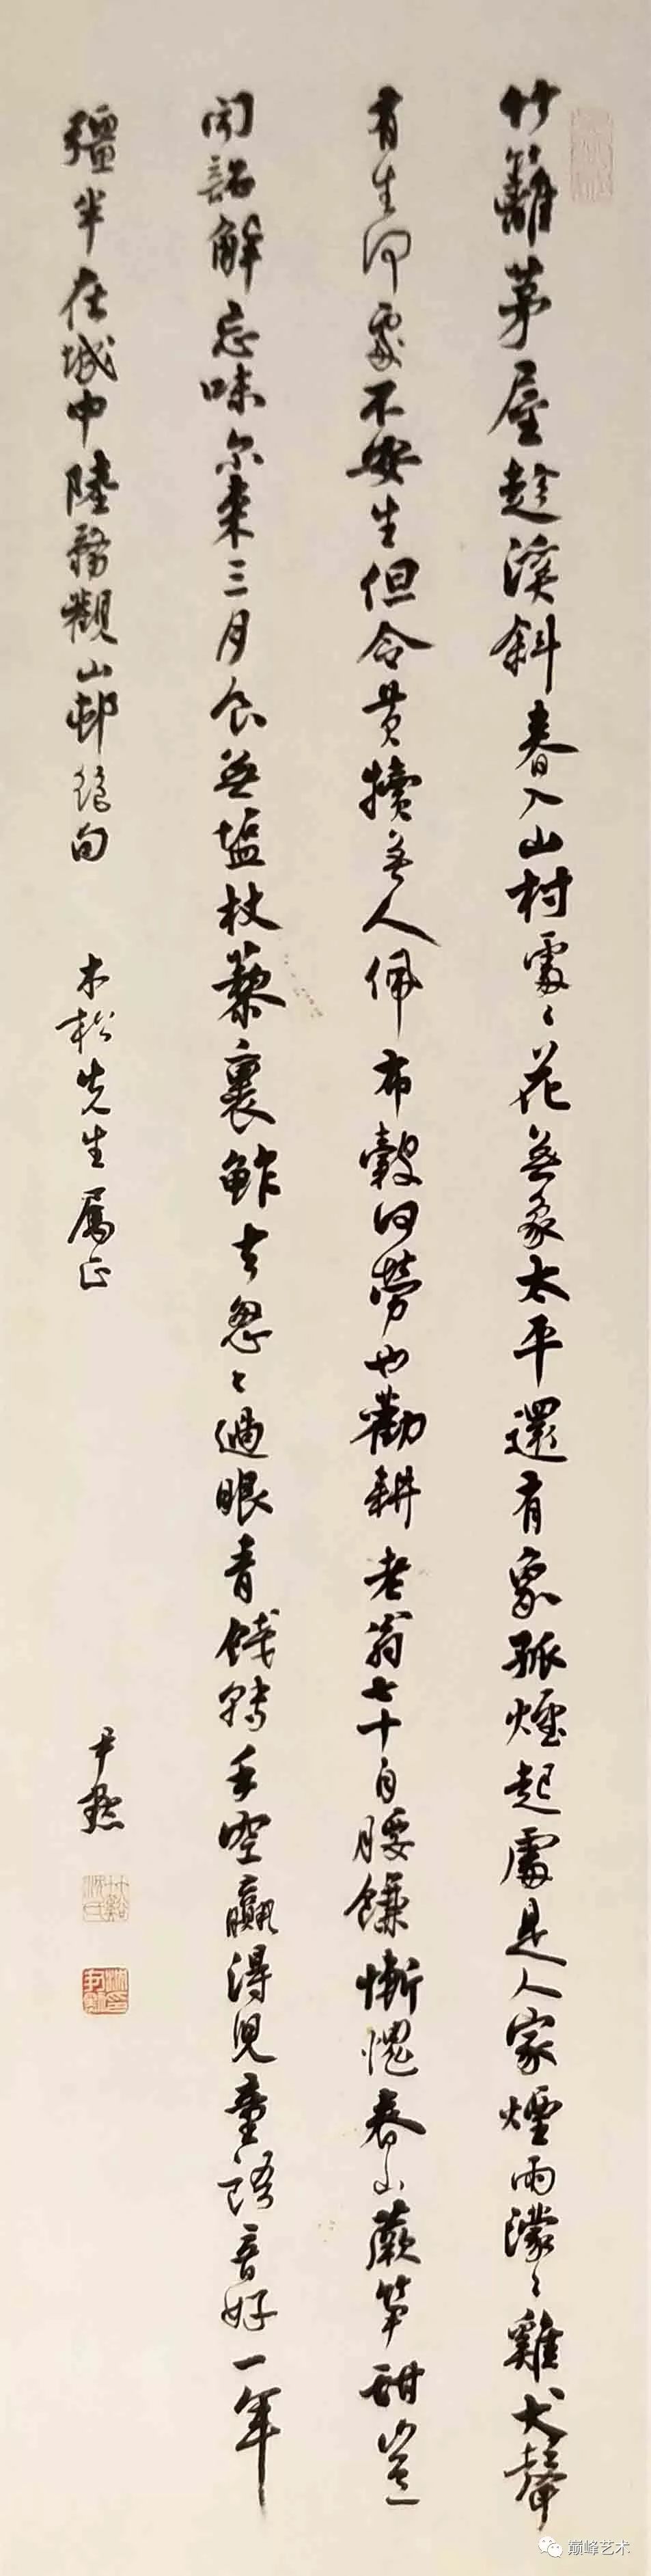 竹籬茅屋趁溪斜春入山村處〻花無象太平還有象孤煙起處是人家煙雨濛〻雞犬聲
有生何處不安生但令黃犢無人佩布穀何勞也勸耕老翁七十自腰鐮慚愧春山蕨筍甜豈
聞韶解忘味尔來三月食無塩杖藜裹鮓去怱〻過眼青錢轉手空贏得兒童語音好一年
彊半在城中陸務觀山邨絕句
木松先生屬正
尹默
巅峰艺术